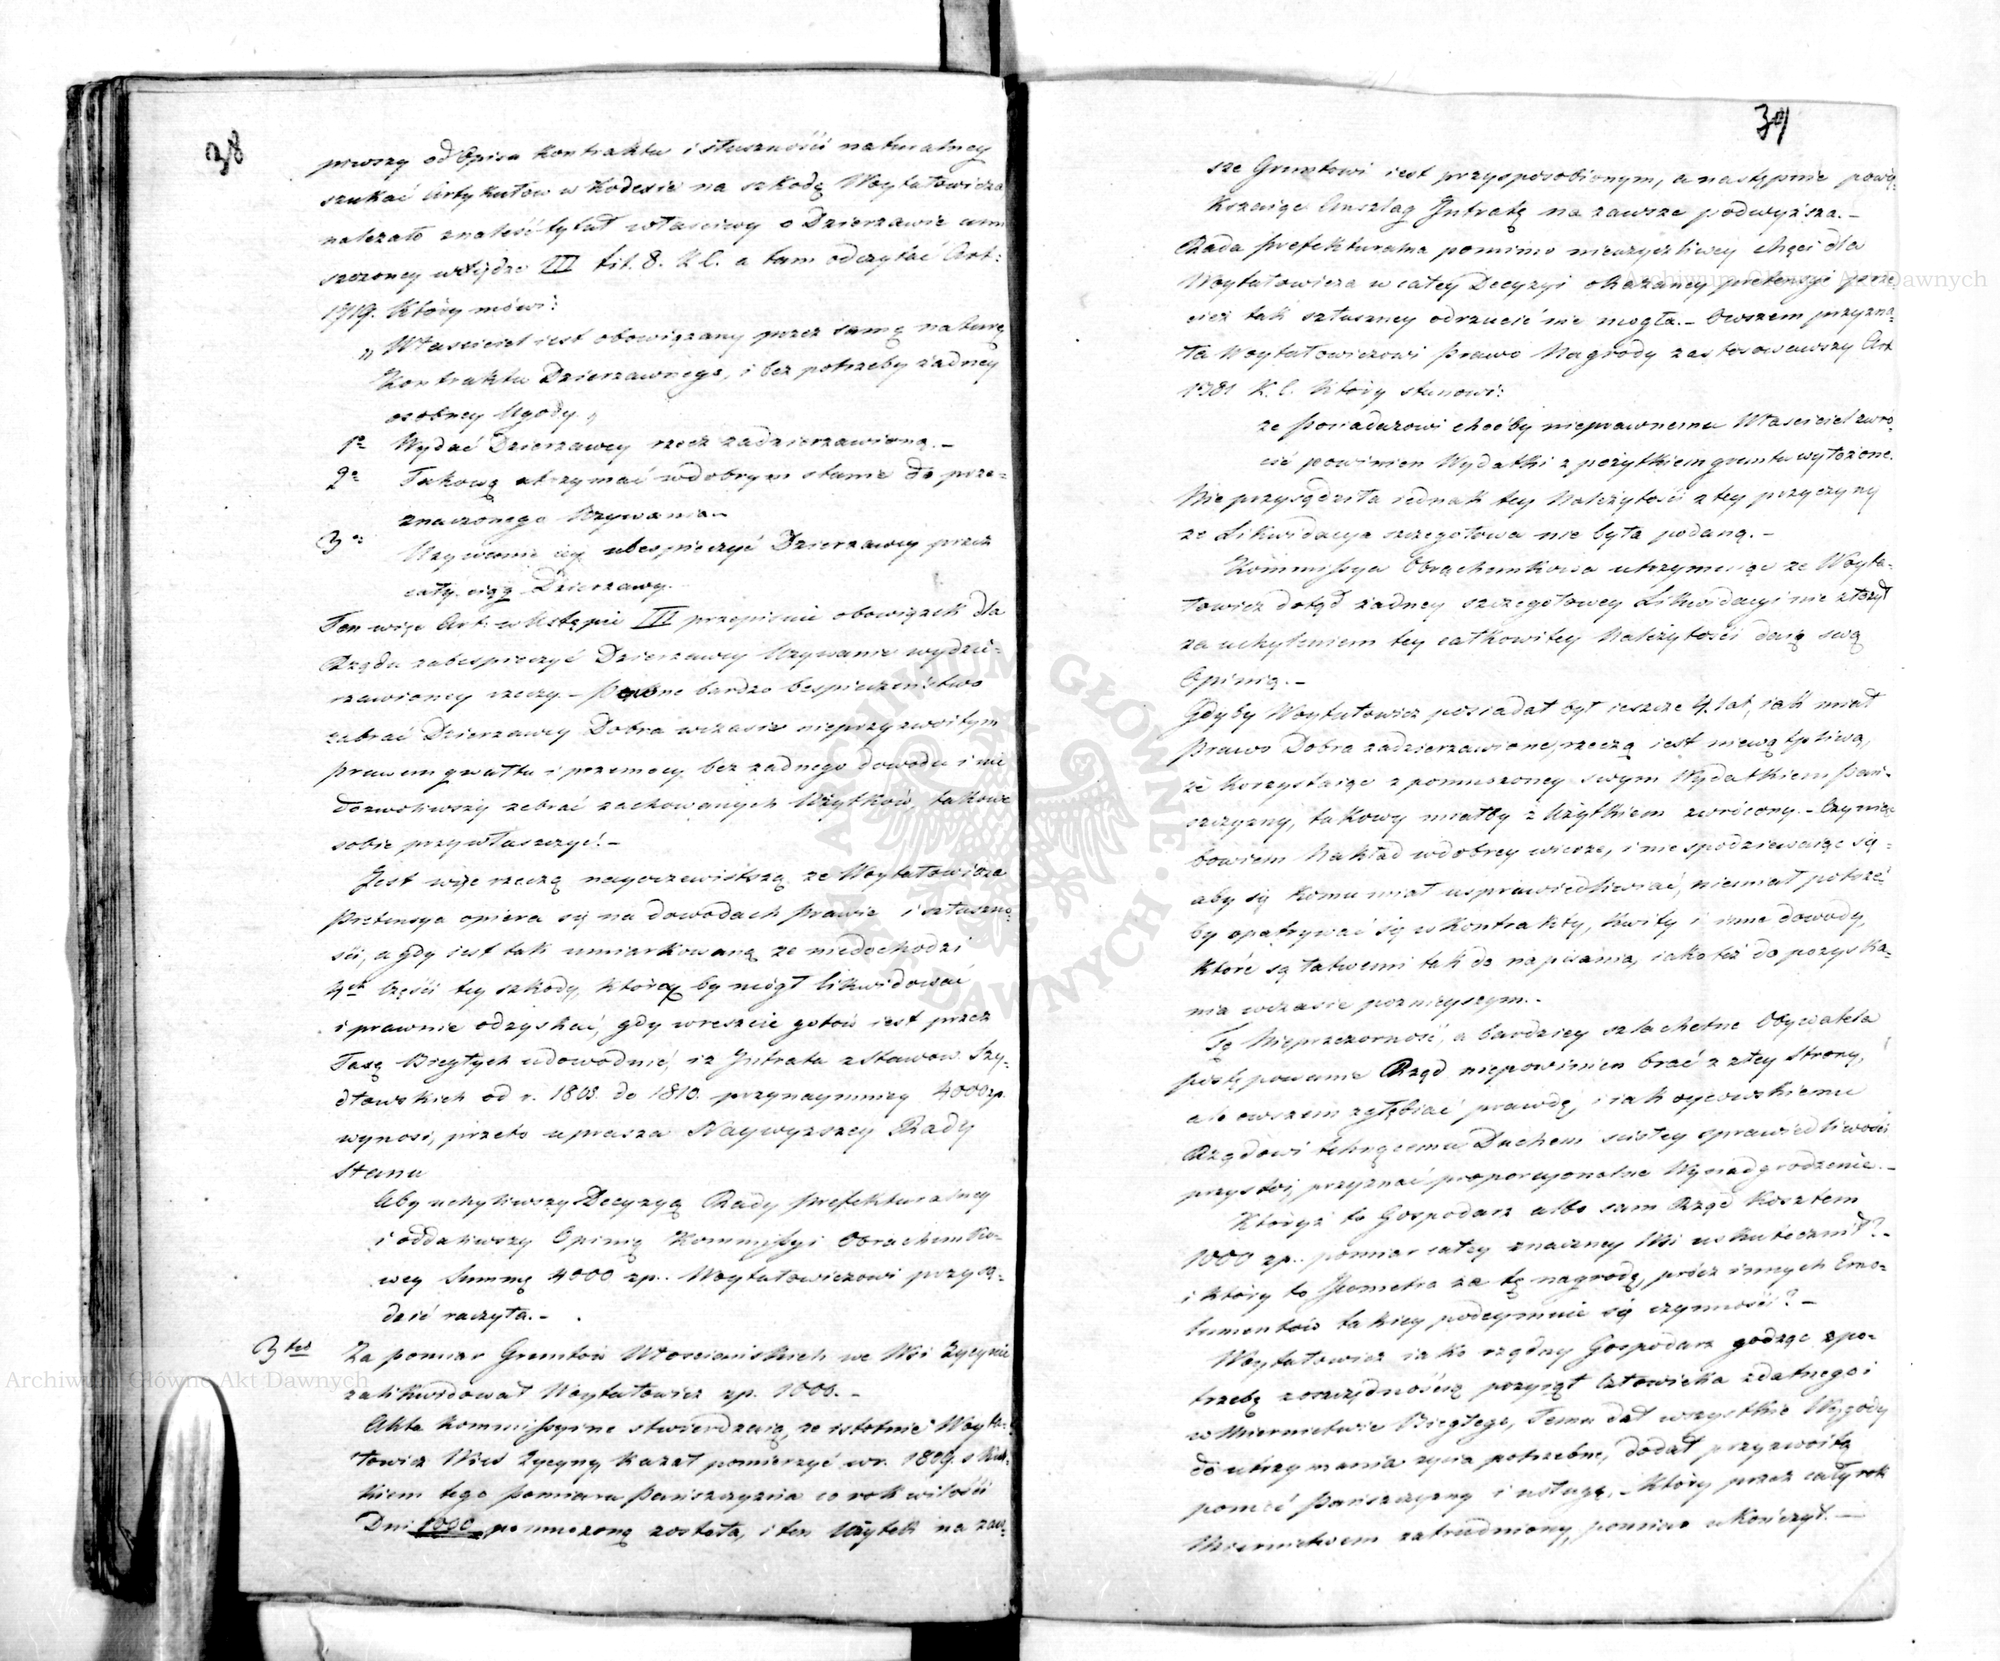 38
prwszy od Opisu Kontraktu i słuszności naturalney
szukać Artykułow w Kodexie na szkodę Woytatowicza
należało znaleść tytuł właściwy o Dzierzawie um
szczoney w Xiędze III tit. 8. K C. a tam odczytać Art:
1719. Który mówi:
„ Właściciel iest obowiązany przez samę naturę
Kontraktu Dzierzawnego, i bez potrzeby żadney
osobney Ugody „
1o Wydać Dzierzawcy rzecz zadzierzawioną. –
2o Takową utrzymać w dobrym stanie do prze-
znaczonego Używania –
3o Używanie iey ubespieczyć Dzierzawcy przez
cały ciąg Dzierzawy.
Ten więc Art: w Ustępie III przepisuie obowiązek dla
Rządu zabespieczyć Dzierzawcy Używanie wydzie-
rzawioney rzeczy. – bardzo bespieczeństwo
zabrać Dzierzawcy Dobra w czasie nieprzyzwoitym
prawem gwałtu i przemocy bez żadnego dowodu i nie
dozwoliwszy zebrać zachowanych Użytków, takowe
sobie przywłaszczyć! –
Jest więc rzeczą nayoczewistszą że Woytatowicza
Pretensya opiera się na dowodach prawie i słuszno-
ści, a gdy iest tak umiarkowaną że niedochodzi
4ey Części tey szkody, którą by mógł likwidować
i prawnie odzyskać, gdy wreszcie gotów iest przez
Taxę Biegłych udowodnić, iż Intrata z stawow Szy-
dłowskich od r. 1808. do 1810. przynaymniey 4000 zp.
wynosi, przeto uprasza Naywyższey Rady
Stanu
Aby uchyliwszy Decyzyą Rady Prefekturalney
i oddaliwszy Opinią Kommissyi Obrachunko-
wey Summę 4000 zp. Woytatowiczowi przysą-
dzić raczyła. –
3tio Za pomiar Gruntów Włościańskich we Wsi Życynie
zalikwidował Woytatowicz zp. 1000. –
Akta Kommissyine stwierdzaią, że istotnie Woyta-
towicz Wieś Życyny kazał pomierzyć w r. 1809. s Skut-
kiem tego pomiaru Pańszczyzna co rok w ilości
Dni 1000 pomnożoną została, i ten Użytek na zaw-
39
sze Gruntowi iest przysposobionym, a następnie powię-
kszaiąc Anszlag Intratę na zawsze podwyższa. –
Rada Prefekturalna pomimo nieuzyczliwey chęci dla
Woytatowicza w całey Decyzyi okazaney pretensyi prze
cież tak słuszney odrzucić nie mogła. – Owszem przyzna-
ła Woytatowiczowi Prawo Nagrody zastosowawszy Art
1381 K. C. Który stanowi:
że Posiadazowi choćby nieprawnemu Właściciel zwro-
cić powinien Wydatki z pożytkiem gruntu wyłożone.
Nie przysądziła iednak tey Należytości z tey przyczyny
że Likwidacya szczegołowa nie była podaną. –
Kommissya Obrachunkowa utrzymuiąc że Woyta-
towicz dotąd żadney szczegołowey Likwidacyi nie złożył
za uchyleniem tey całkowitey Należytości daią swą
Opinią. –
Gdyby Woytatowicz posiadał był ieszcze 4. lat, iak miał
Prawo Dobra zadzierzawione, rzeczą iest niewątpliwą,
że korzystaiąc z pomnożoney swym Wydatkiem Pań-
szczyzny, takowy miałby z Użytkiem zwrócony. – Czyniąc
bowiem Nakład w dobrey wierze, i nie spodziewaiąc się
aby się komu miał usprawiedliwiać, niemiał potrze-
by opatrywać się w Kontrakty, Kwity i inne dowody,
które są łatwemi tak do napisania, iakoteż do pozyska-
nia w czasie poznieyszym. –
Tę Nieprzezorność, a bardziey szlachetne Obywatela
postępowanie Rząd niepowinien brać z złey Strony,
ale owszem zgłębiać prawdę, i iak oycowskiemu
Rządowi tchnącemu Duchem scisłey sprawiedliwości
przystoi, przyznać proporcyonalne Wynadgrodzenie. –
Któryż to Gospodarz albo sam Rząd Kosztem
1000 zp. pomiar całey znaczney Wsi uskutecznił? –
i który to Jeometra za tę nagrodę, prócz innych Emo-
lumentów takiey podeymuie się czynności? –
Woytatowicz iako rządny Gospodarz godząc z po-
trzebą z oszczędnością przyiął Człowieka zdatnego i
w Miernictwie Biegłego, Temu dał wszystkie Wygody
do utrzymania życia potrzebne, dodał przyzwoitą
pomoć Pańszczyzny i usługę. – Który przez cały rok
Miernictwem zatrudniony, pomiar ukończył. –